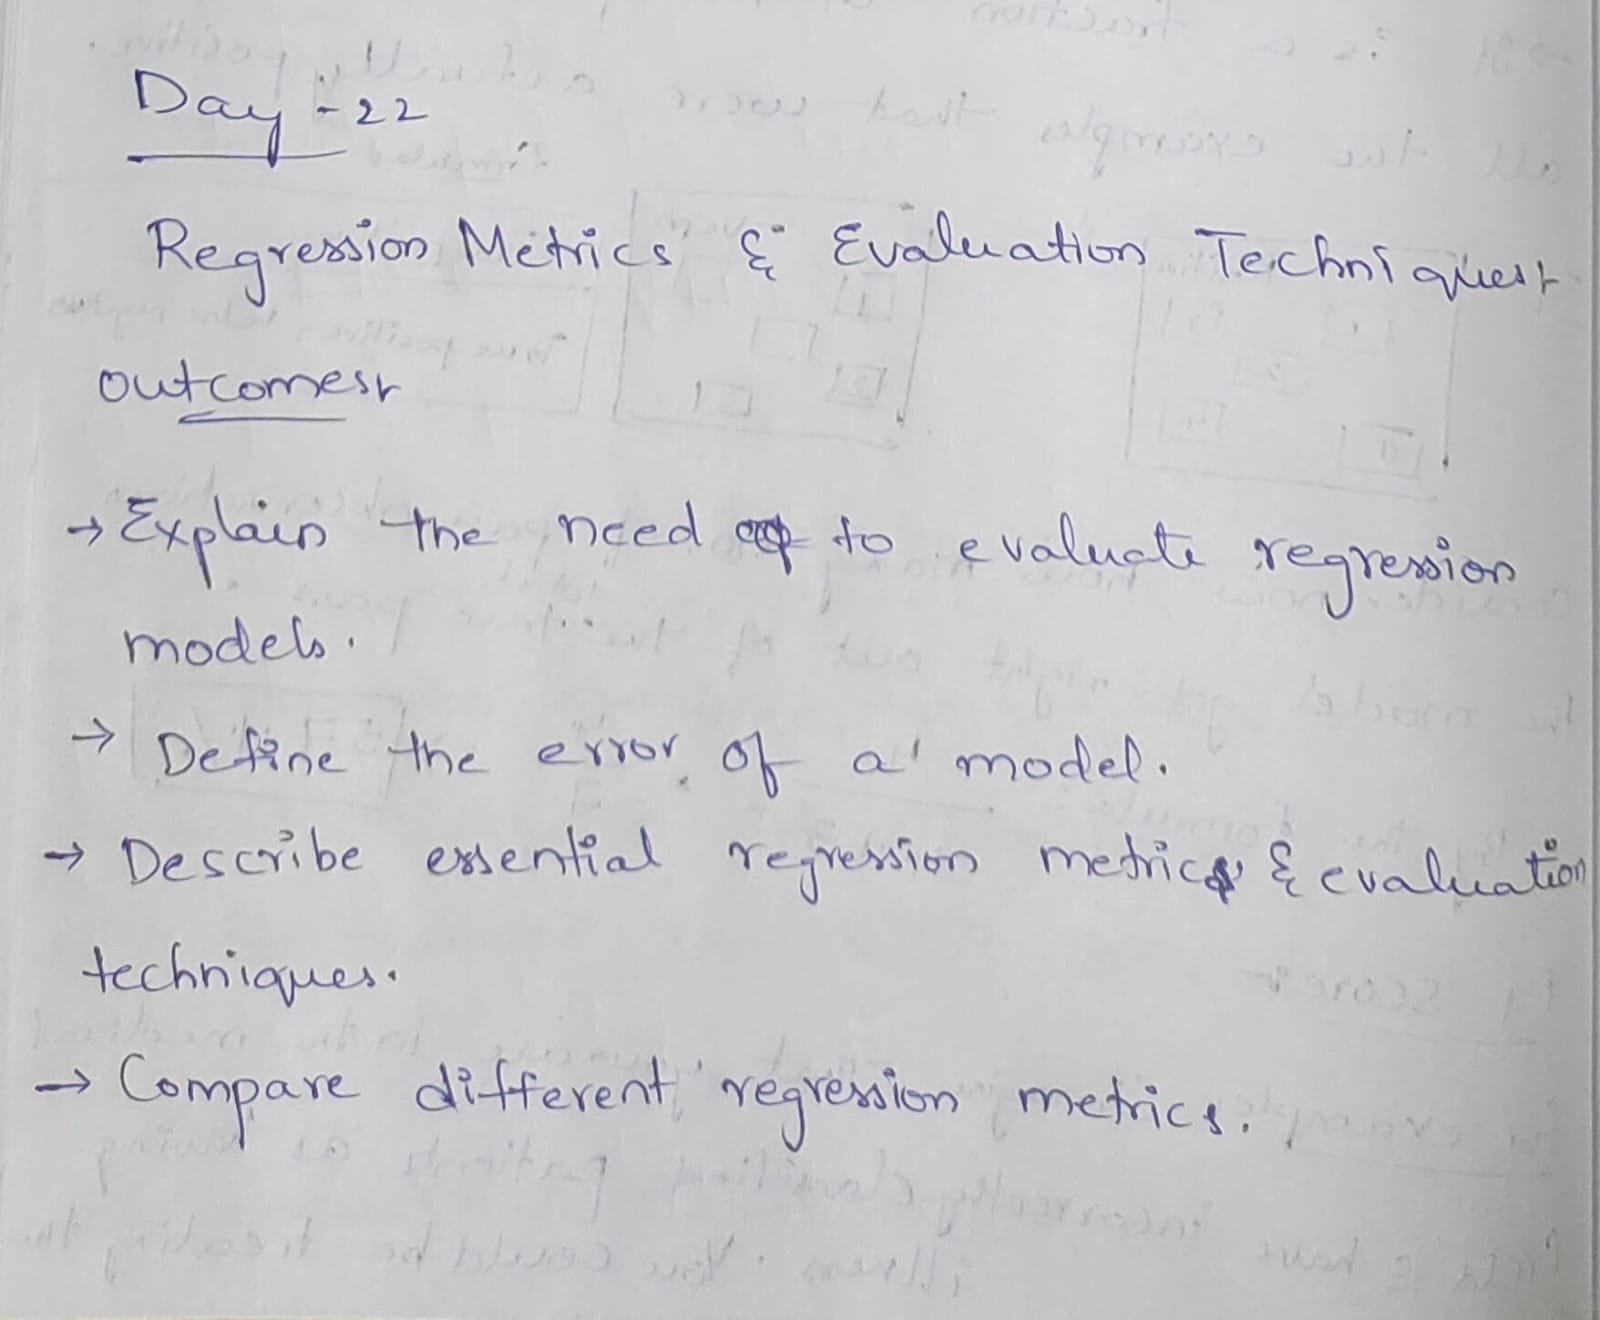 Day - 22
Regression Metrics & Evaluation Techniques:-
outcomes:-
→ Explain the need to evaluate regression
models.
→ Define the error of a model.
→ Describe essential regression metrics & evaluation
techniques.
→ Compare different regression metrics.